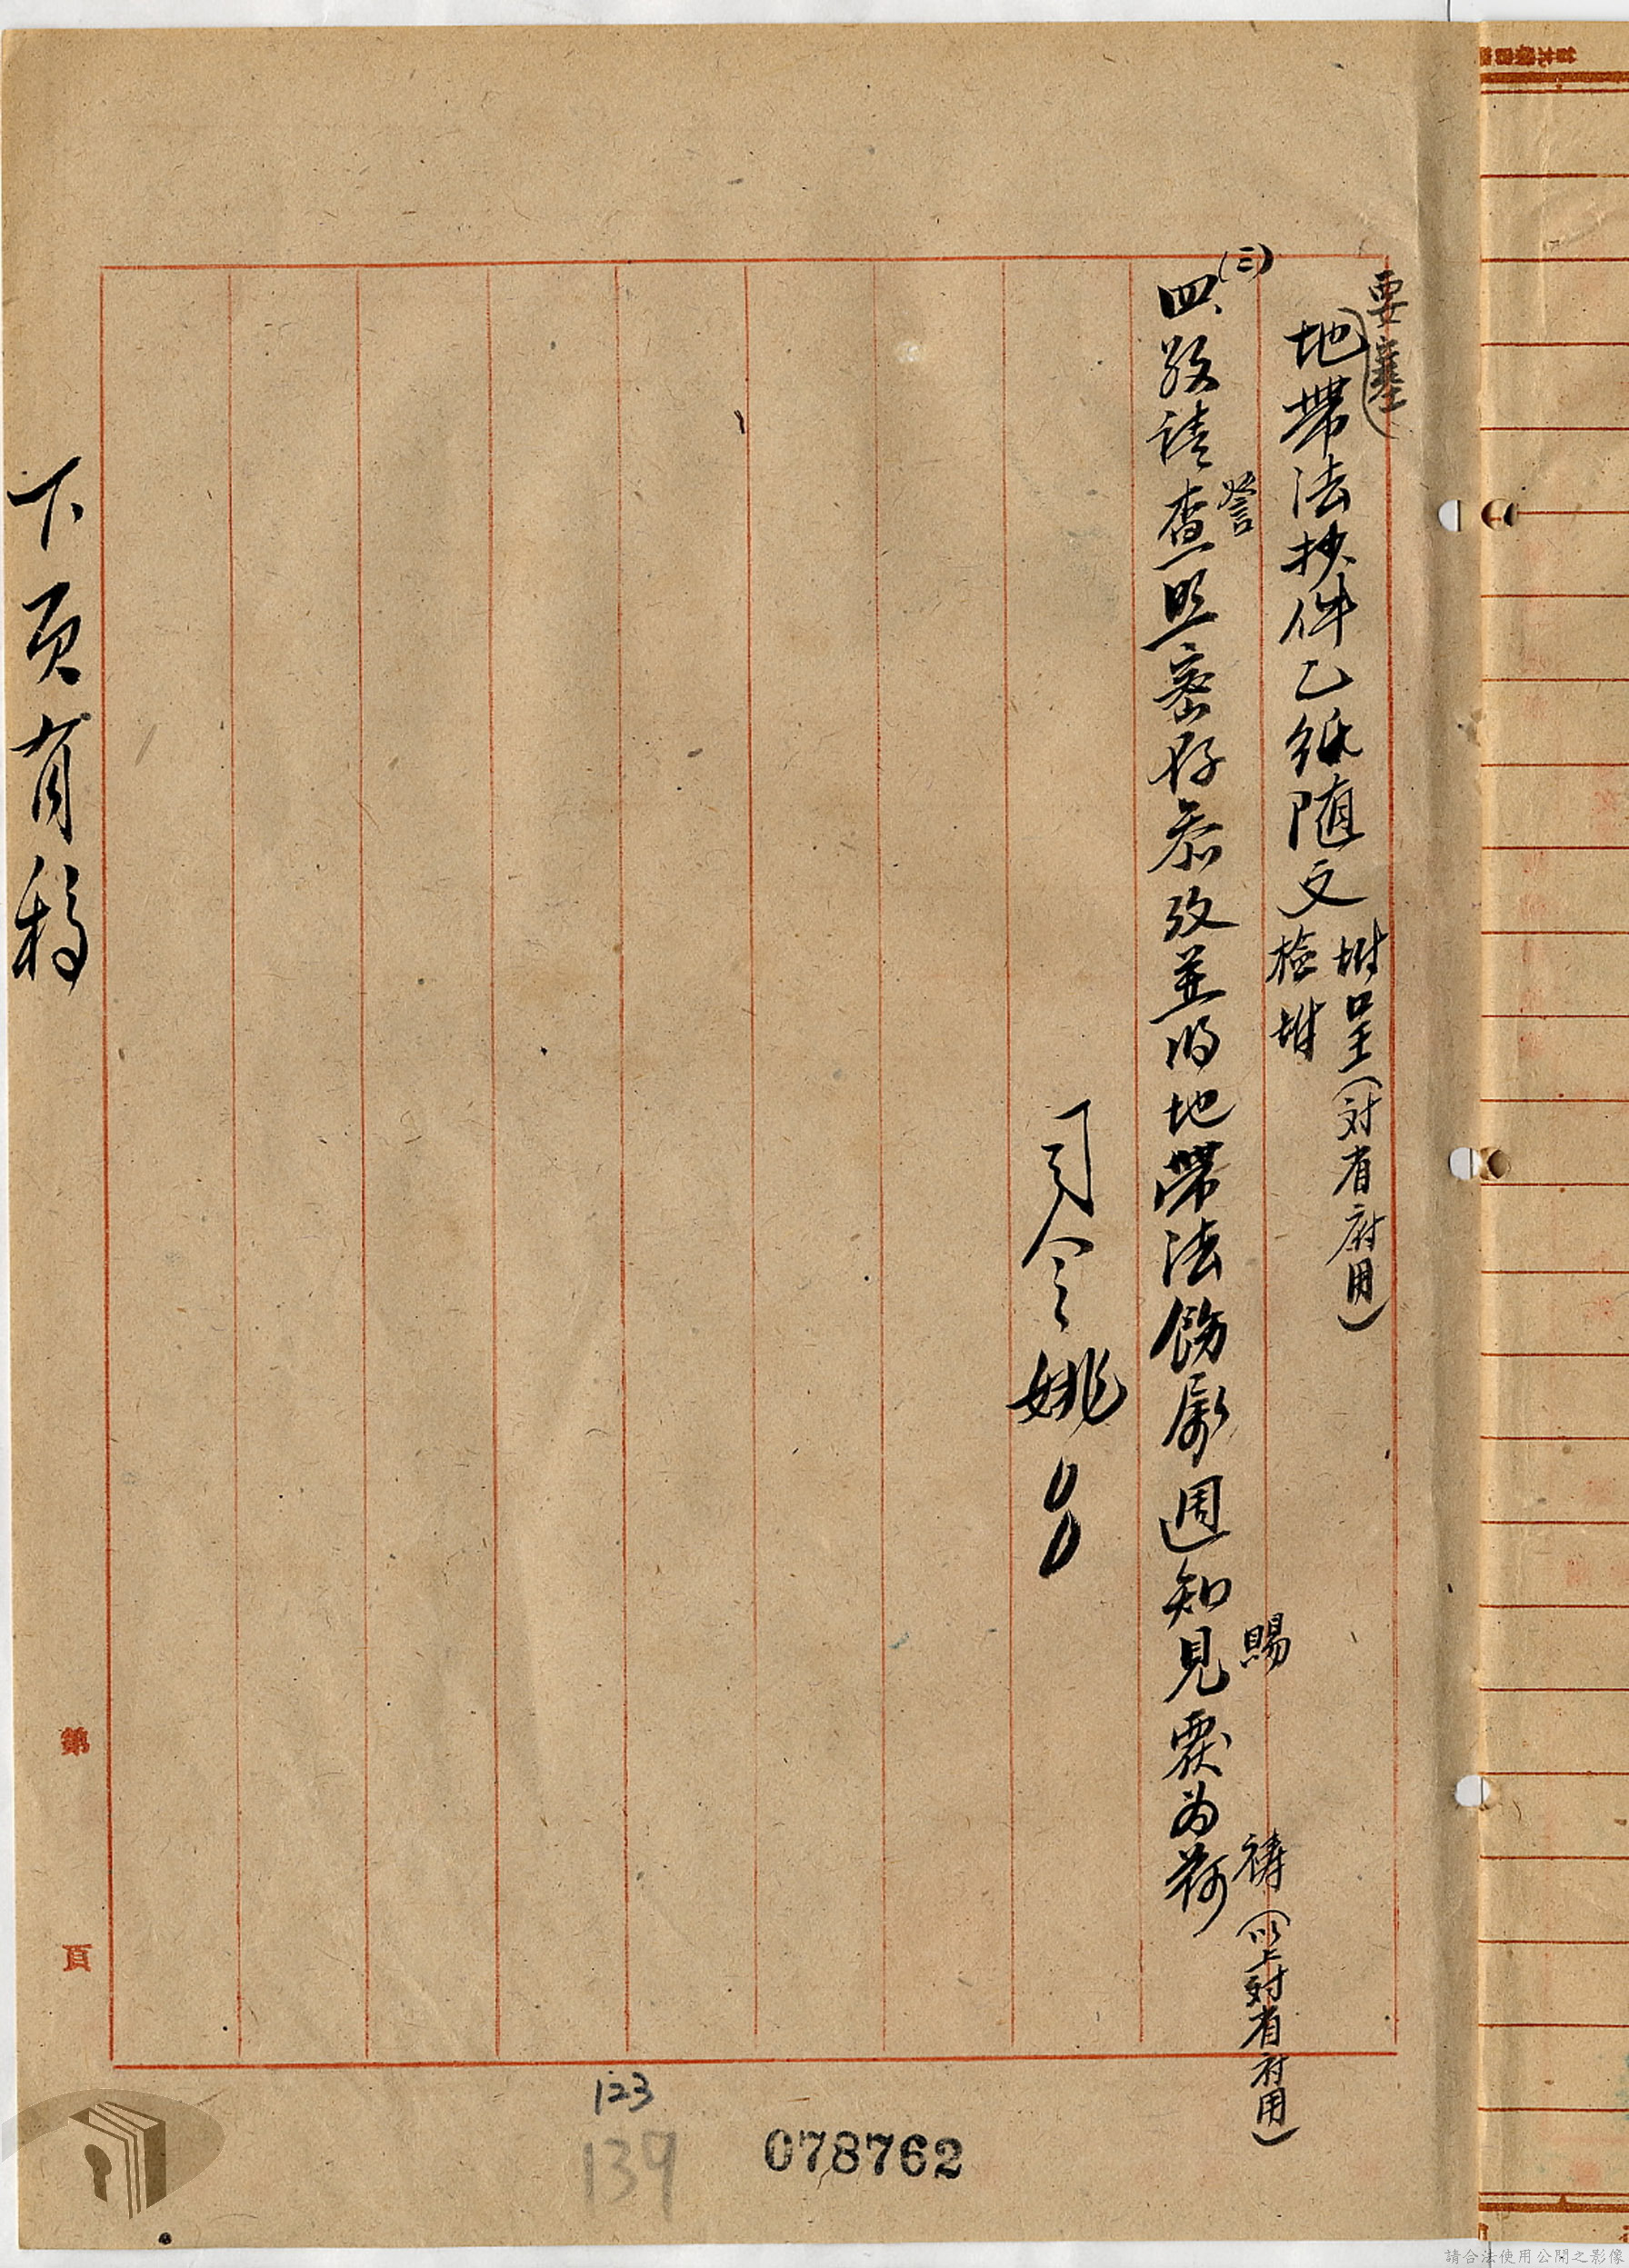 要塞
地帶法抄件乙紙随文
附呈(対省府用)
檢附
(三)
四、敬請查照密存參攷並將地帶法飭屬週知見覆为荷
詧
賜
禱(以上対省府用)
司令姚
下頁有稿
第 頁
123
139
078762
請合法使用公開之影像